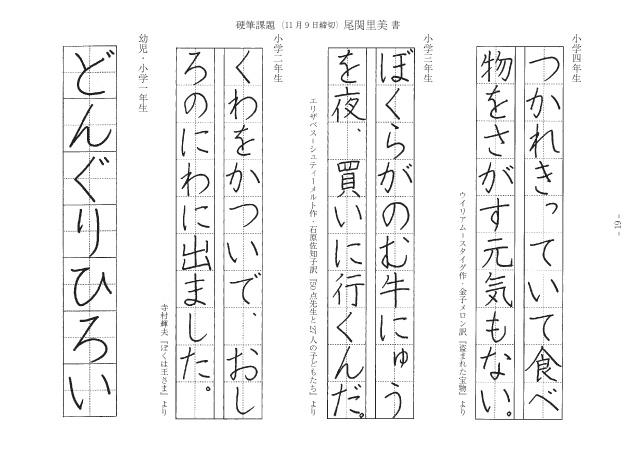 硬筆課題（11月9日締切）尾関里美 書
小学四年生
つかれきっていて食べ
物をさがす元気もない。
ウイリアム＝スタイグ作・金子メロン訳『盗まれた宝物』より
小学三年生
ぼくらがのむ牛にゅう
を夜、買いに行くんだ。
エリザベス＝シュティーメルト作・石原佐知子訳『50点先生と27人の子どもたち』より
小学二年生
くわをかついで、おし
ろのにわに出ました。
寺村輝夫『ぼくは王さま』より
幼児・小学一年生
どんぐりひろい
- 19 -